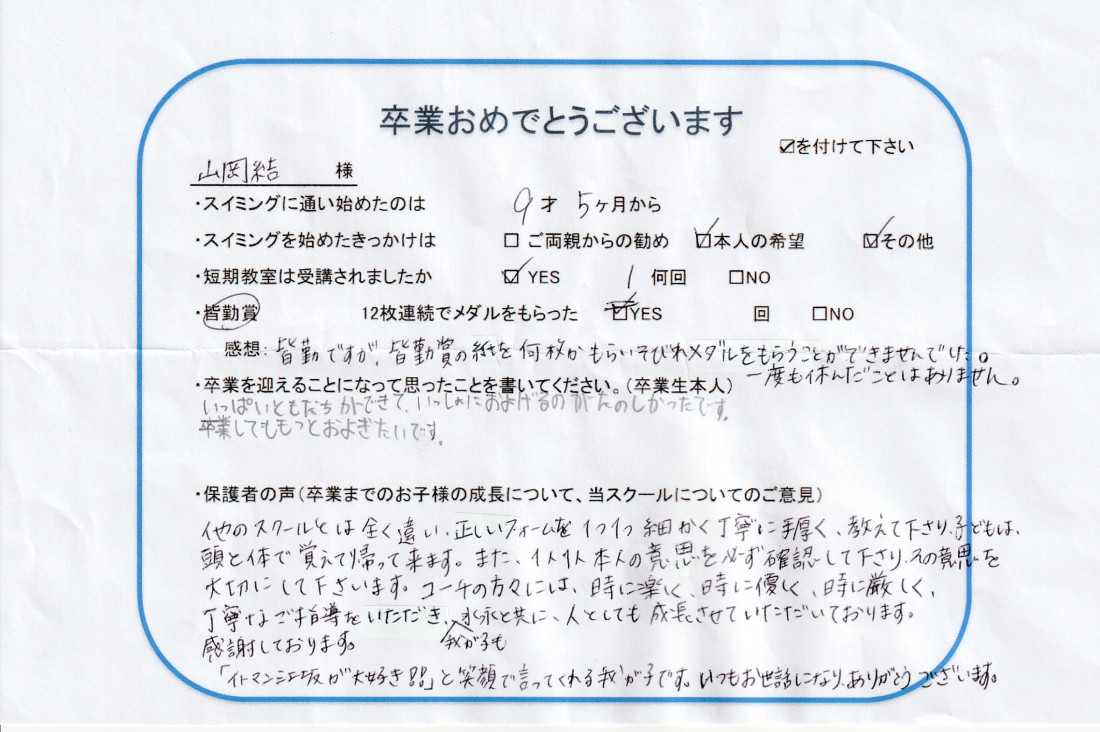 卒業おめでとうございます
☑を付けて下さい
山岡結 様
・スイミングに通い始めたのは 9才 5ヶ月から
・スイミングを始めたきっかけは □ ご両親からの勧め ☑本人の希望 ☑その他
・短期教室は受講されましたか ☑ YES 1 何回 □NO
・皆勤賞 12枚連続でメダルをもらった ☑YES 回 □NO
感想: 皆勤ですが、皆勤賞の紙を何枚かもらいそびれメダルをもらうことができませんでした。
一度も休んだことはありません。
・卒業を迎えることになって思ったことを書いてください。(卒業生本人)
いっぱいともだちができて、いっしょにおよげるのがたのしかったです。
卒業してももっとおよぎたいです。
・保護者の声(卒業までのお子様の成長について、当スクールについてのご意見)
他のスクールとは全く違い、正しいフォームを1つ1つ細かく丁寧に手厚く、教えて下さり、子どもは、
頭と体で覚えて帰って来ます。また、1人1人本人の意思を必ず確認して下さり、その意思を
大切にして下さいます。コーチの方々には、時に楽しく、時に優しく、時に厳しく、
丁寧なご指導をいただき、水泳と共に、人としても成長させていただいております。
感謝しております。 我が子も
「イトマン江坂が大好き!!」と笑顔で言ってくれる我が子です。いつもお世話になり、ありがとうございます。